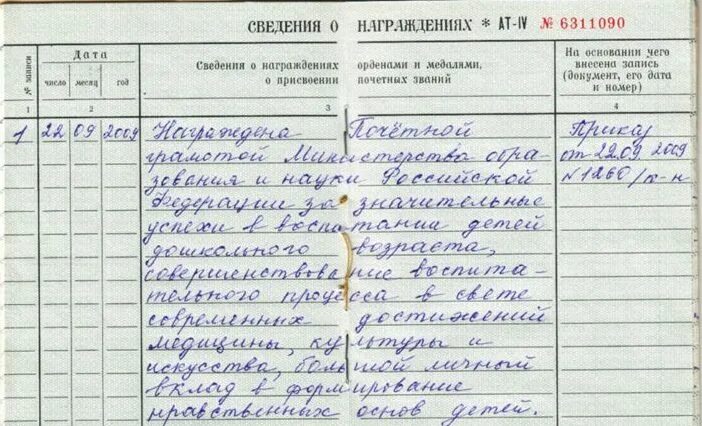 СВЕДЕНИЯ О НАГРАЖДЕНИЯХ * АТ-IV № 6311090
№ записи
Дата
число месяц год
Сведения о награждениях орденами и медалями,
о присвоении почетных званий
На основании чего
внесена запись
(документ, его дата
и номер)
1 2 3 4
1 22 09 2009 Награждена Почётной
грамотой Министерства обра-
зования и науки Российской
Федерации за значительные
успехи в воспитании детей
дошкольного возраста,
совершенствование воспита-
тельного процесса в свете
современных достижений
медицины, культуры и
искусства, большой личный
вклад в формирование
нравственных основ детей.
Приказ
от 22.09.2009
N1260/к-н